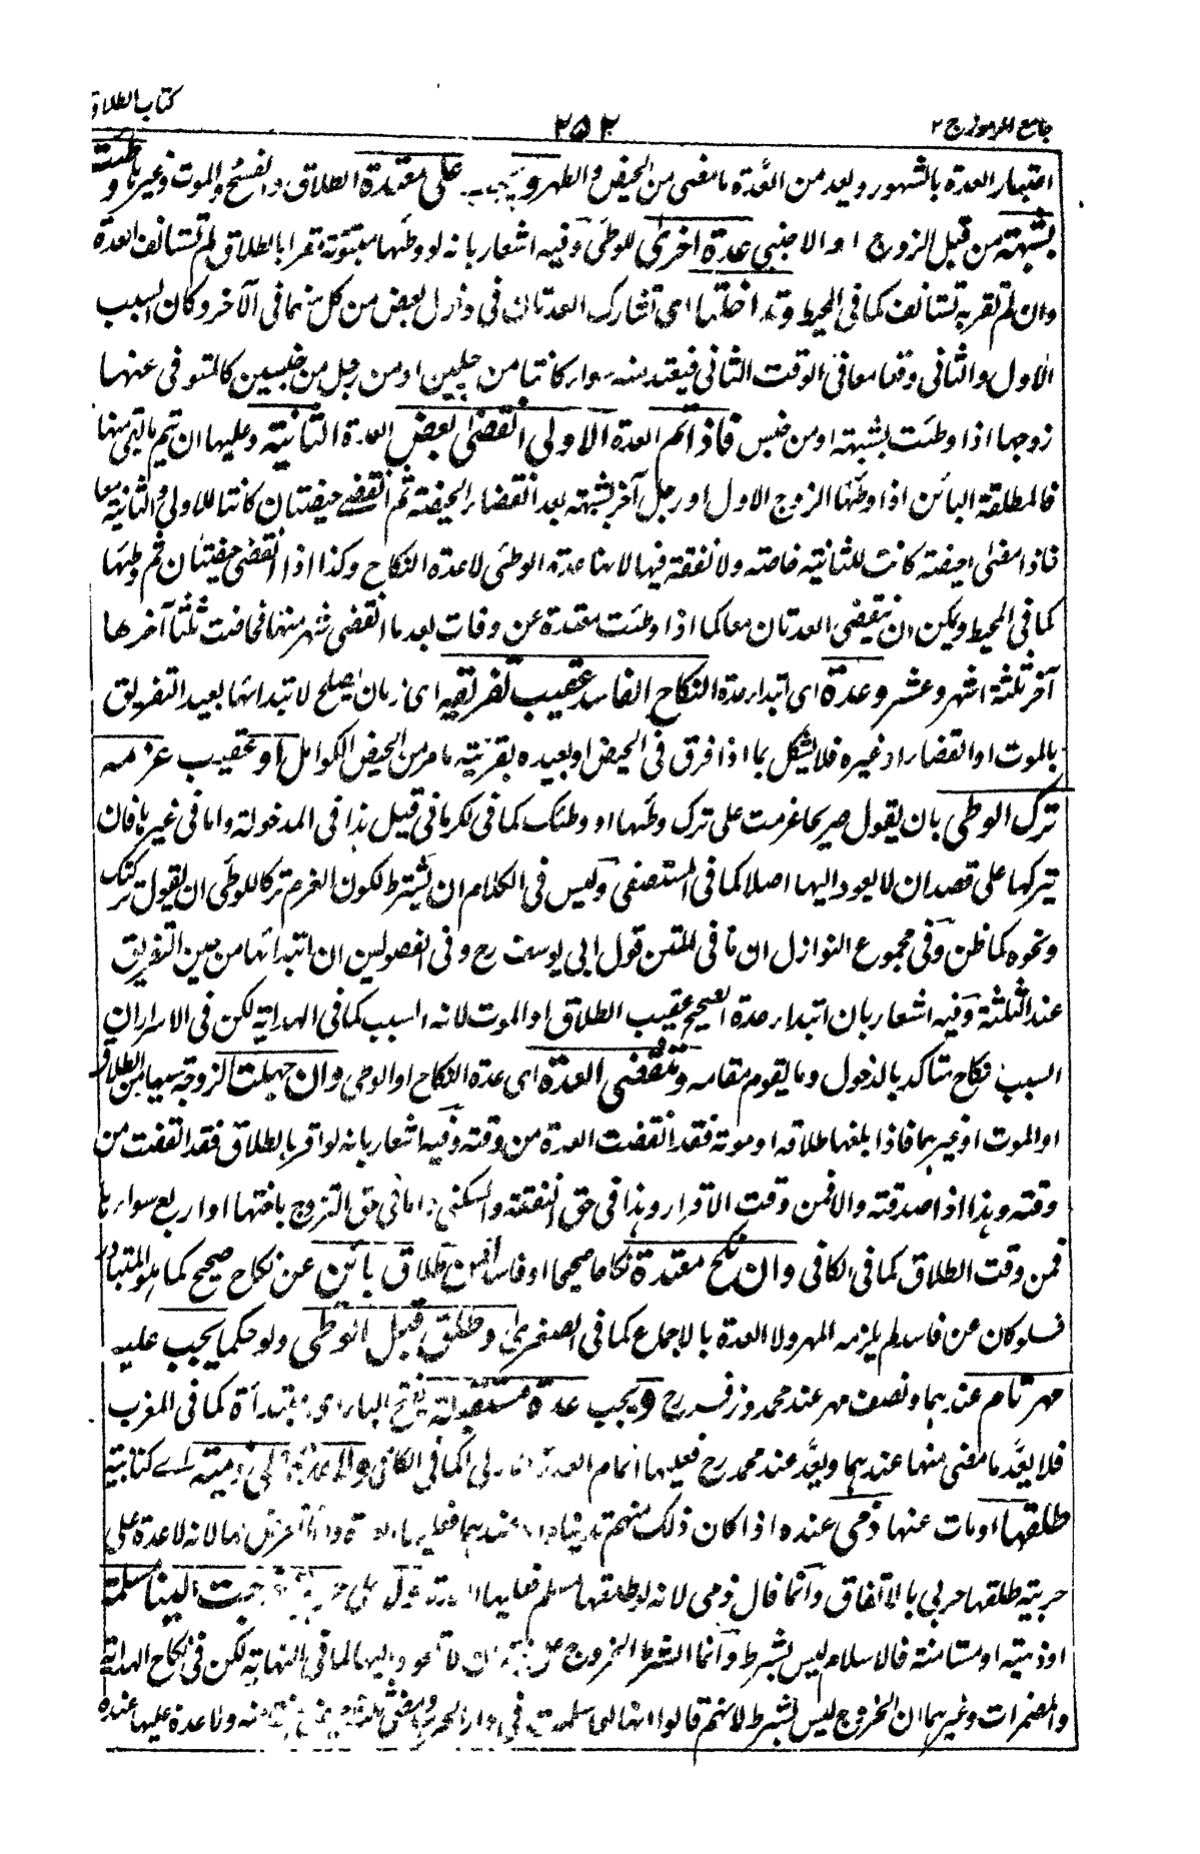 كتاب الطلاق
٢٥٢
جامع الرموز ج ٢
اعتبار العدة بالشهور ويعد من العدة ما مضى من الحيض والطهر و على معتدة الطلاق والفسخ والموت وغيرها وطئت
بشبهة من قبل الزوج او الاجنبي عدة اخرى للوطئ وفيه اشعار بانه لو وطئها مبتوتة مقرا بالطلاق لم تستانف العدة
وان لم تقر به تستانف كما في المحيط وتداخلتا اى تشارك العدتان فى دخول البعض من كل منهما فى الآخر وكان السبب
الاول والثانى وقعا معا فى الوقت الثانى فيعتد منه سواء كانتا من رجلين او من رجل من جنسين كالمتوفى عنها
زوجها اذا وطئت بشبهة او من جنس فاذا تم العدة الاولى انقضى بعض العدة الثانية وعليها ان تتم ما بقى منها
فالمطلقة البائن اذا وطئها الزوج الاول او رجل آخر بشبهة بعد انقضاء الحيضة ثم انقضى حيضتان كانتا للاولى والثانية معا
فاذا مضى حيضة كانت للثانية خاصة ولا نفقة فيها لانها عدة الوطئ لا عدة النكاح وكذا اذا انقضى حيضتان ثم وطئها
كما فى المحيط ويمكن ان تنقضى العدتان معا كما اذا وطئت معتدة عن وفات بعد ما انقضى شهر منها فحاضت ثلثا آخرها
آخر ثلثة اشهر وعشر وعدة اى ابتداء عدة النكاح الفاسد عقيب تفريقه اى زمان يصلح لابتدائها بعيد التفريق
بالموت او القضاء او غيره فلا يشكل بما اذا فرق فى الحيض او بعيده بقرينة ما مر من الحيض الكوامل او عقيب عزمه
ترك الوطى بان يقول صريحا عزمت على ترك وطئها او وطئك كما فى الكرمانى قيل هذا فى المدخولة واما فى غيرها فان
يتركها على قصد ان لا يعود اليها اصلا كما فى المستصفى وليس فى الكلام ان يشترط لكون العزم تركا للوطئ ان يقول تركتك
ونحوه كما ظن وفى مجموع النوازل ان ما فى المتن قول ابى يوسف رح وفى الفصولين ان ابتدائها من حين التفريق
عند الثلثة وفيه اشعار بان ابتداء عدة الصحيح عقيب الطلاق او الموت لانه السبب كما فى الهداية لكن فى الاسرار ان
السبب نكاح متاكد بالدخول وما يقوم مقامه وتنقضى العدة اى عدة النكاح او الوطى وان جهلت الزوجة سببها من الطلاق
او الموت او غيرهما فاذا بلغها طلاقه او موته فقد انقضت العدة من وقته وفيه اشعار بانه لو اقر بالطلاق فقد انقضت من
وقته وهذا اذا صدقته والا فمن وقت الاقرار وهذا فى حق النفقة والسكنى اما فى حق التزوج باختها او اربع سواها
فمن وقت الطلاق كما فى الكافى وان نكح معتدة نكاحا صحيحا او فاسدا من طلاق بائن عن نكاح صحيح كما هو المتبادر
فلو كان عن فاسد لم يلزمه المهر ولا العدة بالاجماع كما فى الصغرى وطلق قبل الوطى ولو حكما يجب عليه
مهر تام عندهما ونصف مهر عند محمد وزفر رح ويجب عدة مستقبلة بفتح الباء اى مبتدأة كما فى المغرب
فلا يعد ما مضى منها عندهما ويعد عند محمد رح فعليها اتمام العدة الاولى كما فى الكافى ولا عدة على ذمية اے كتابية
طلقها او مات عنها ذمى عنده اذا كان ذلك منهم تدينا عندهما فعليها لانه لا عدة على
حربية طلقها حربى بالاتفاق وانما قال ذمى لانه لو طلقها مسلم فعليها خرجت الينا مسلمة
او ذمية او مستامنة فالاسلام ليس بشرط وانما الشرط الخروج على لا تعود اليها كما فى النهاية لكن فى نكاح الهداية
والمضمرات وغيرهما ان الخروج ليس بشرط لانهم قالوا انها لو اسلمت فى دار الحرب ومضى ولا عدة عليها عنده